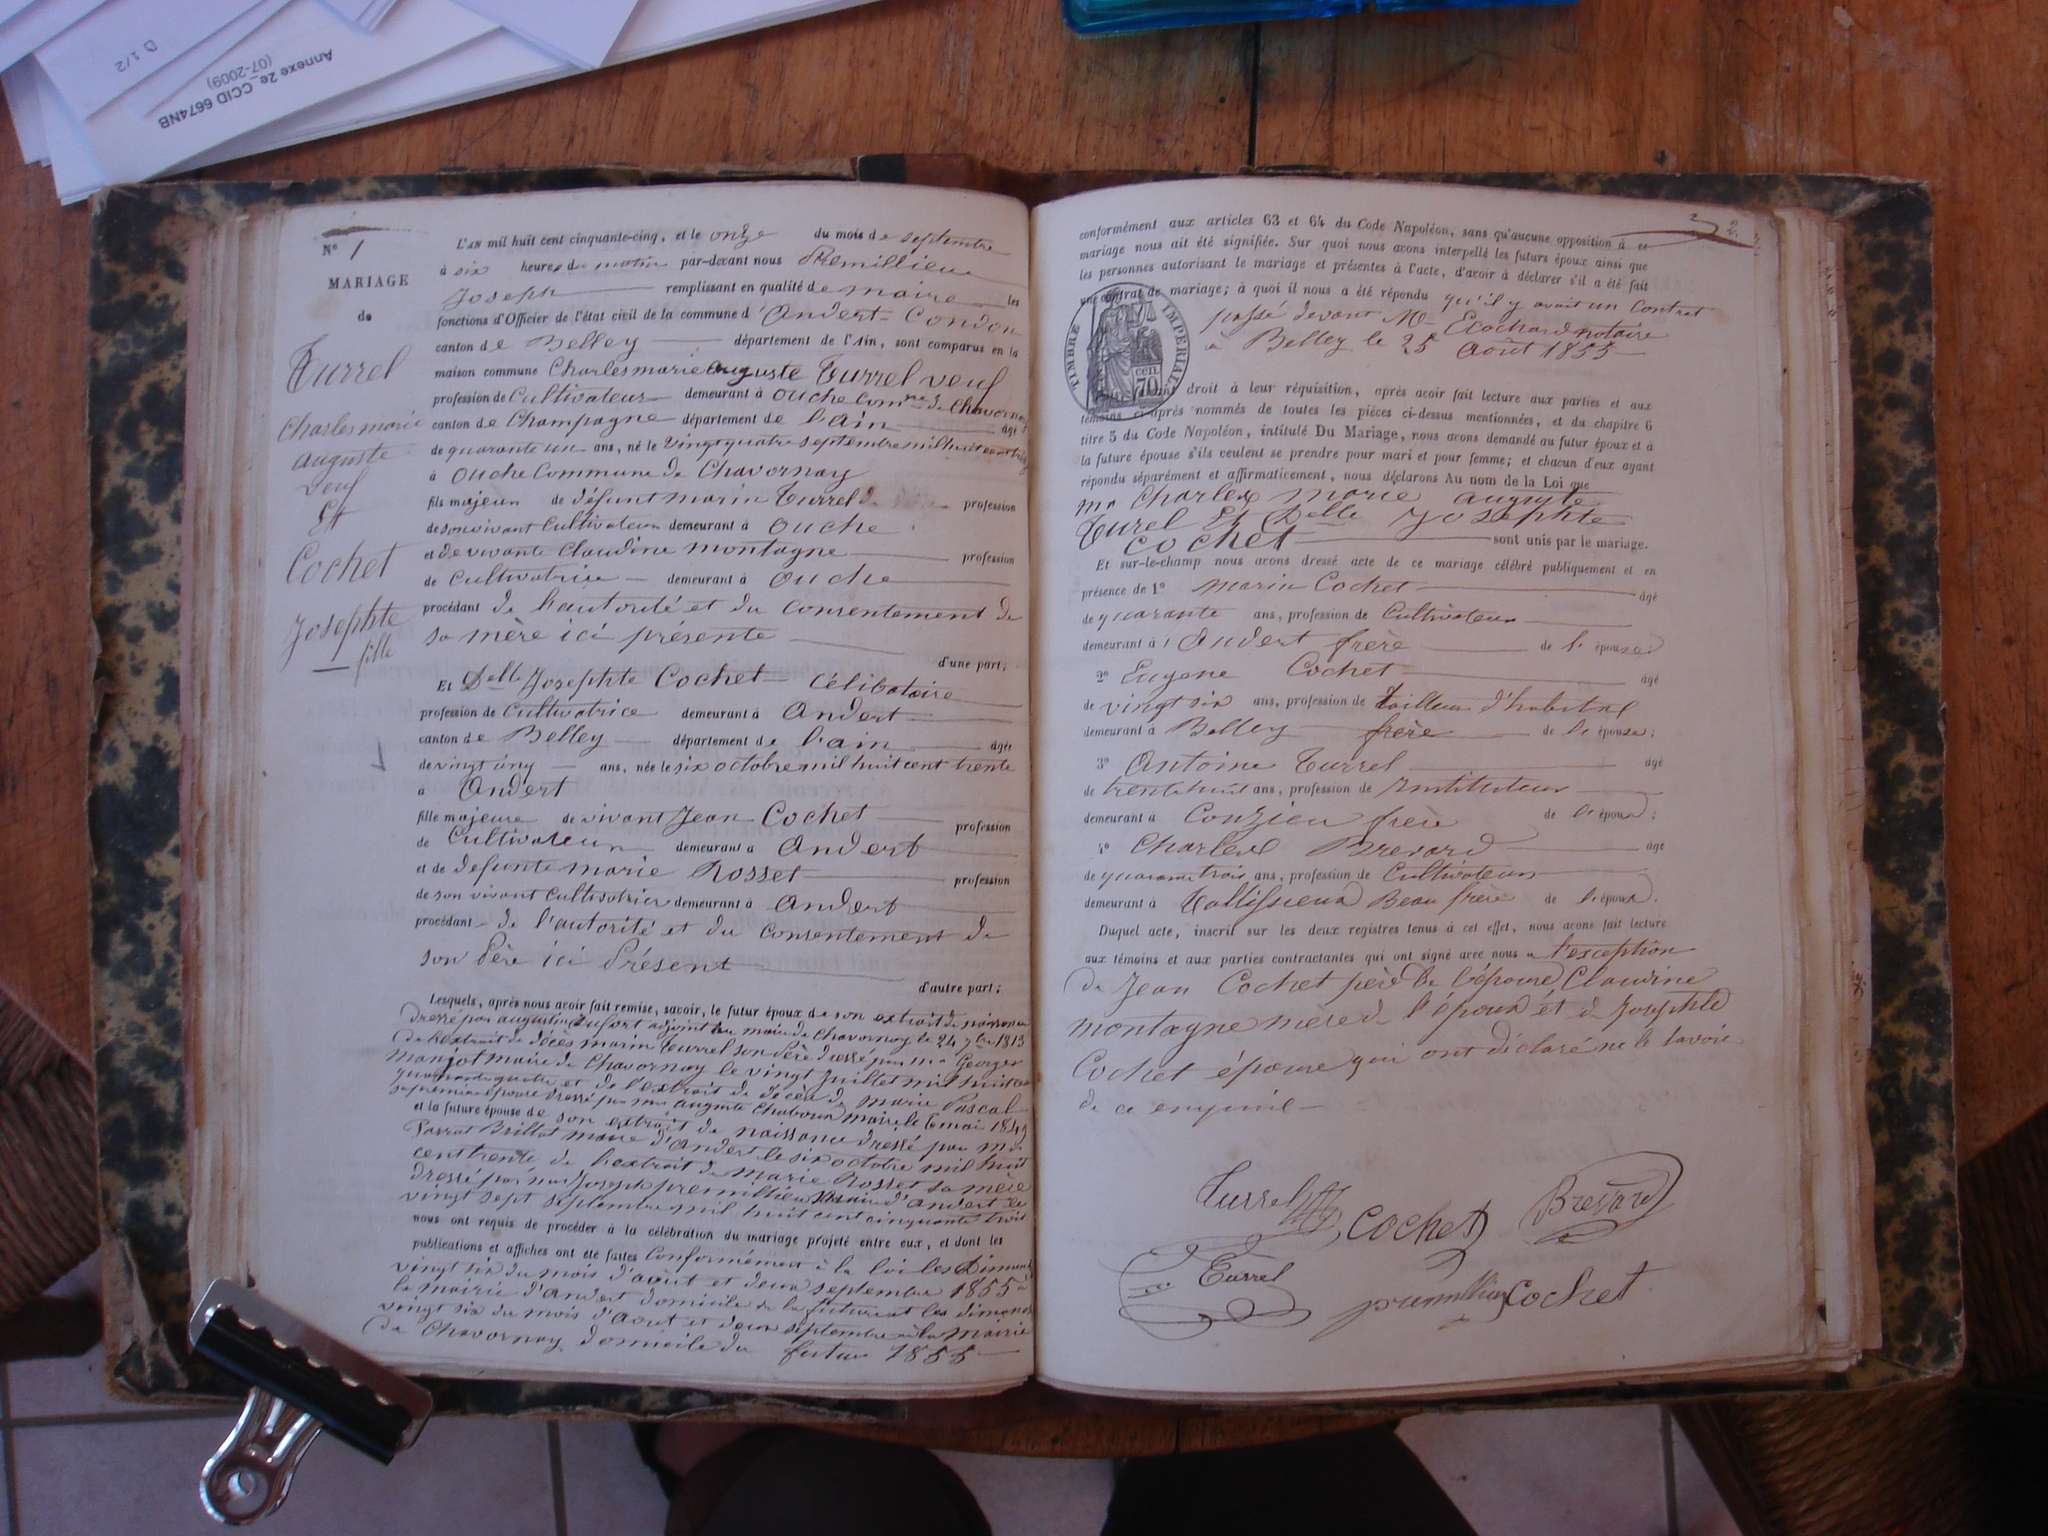 D 1/2
Annexe 2e_CCID 6674NB
(07-2009)
N° 1
MARIAGE
de
Turrel
Charles marie
auguste
veuf
Et
Cochet
Josephte
fille
L'AN mil huit cent cinquante-cinq, et le onze du mois de septembre
à six heures du matin par-devant nous Premillieu
Joseph remplissant en qualité de maire les
fonctions d'Officier de l'état civil de la commune d'Andert-Condon
canton de Belley département de l'Ain, sont comparus en la
maison commune Charles marie auguste Turrel veuf
profession de Cultivateur demeurant à ouche Comne de Chavornay
canton de Champagne département de l'ain âgé
de quarante un ans, né le vingt quatre septembre mil huit cent
à ouche Commune de Chavornay
fils majeur de défunt marin Turrel profession
de son vivant Cultivateur demeurant à ouche
et de vivante Claudine montagne profession
de Cultivatrice demeurant à ouche
procédant de l'autorité et du consentement de
sa mère ici présente
d'une part;
Et Delle Josephte Cochet célibataire
profession de Cultivatrice demeurant à Andert
canton de Belley département de l'ain âgée
de vingt ans, née le six octobre mil huit cent trente
à Andert
fille majeure de vivant Jean Cochet profession
de Cultivateur demeurant à Andert
et de defunte marie Rosset profession
de son vivant Cultivatrice demeurant à Andert
procédant de l'autorité et du consentement de
son Père ici Présent
d'autre part;
Lesquels, après nous avoir fait remise, savoir, le futur époux de son extrait de naissance
dressé par augustin Dufort adjoint au maire de Chavornay le 24 7bre 1813
de l'extrait de décès marin Turrel son Père dressé par mr Georges
manjot maire de Chavornay le vingt Juillet mil huit cent
quarante quatre et de l'extrait de décès de marie Pascal
sa première épouse dressé par mr auguste Chaboux maire le 6 mai 1849
et la future épouse de son extrait de naissance dressé par mr
Brillat maire d'Andert le six octobre mil huit
cent trente de l'extrait de marie Rosset sa mère
dressé par nous Joseph premillieu maire d'Andert le
vingt sept septembre mil huit cent cinquante trois
nous ont requis de procéder à la célébration du mariage projeté entre eux, et dont les
publications et affiches ont été faites Conformément à la loi les Dimanches
vingt six du mois d'août et deux septembre 1855 à
la mairie d'Andert domicile de la future et les dimanches
vingt six du mois d'août et deux septembre à la mairie
de Chavornay domicile du futur 1855
conformément aux articles 63 et 64 du Code Napoléon, sans qu'aucune opposition à ce
mariage nous ait été signifiée. Sur quoi nous avons interpellé les futurs époux ainsi que
les personnes autorisant le mariage et présentes à l'acte, d'avoir à déclarer s'il a été fait
un contrat de mariage; à quoi il nous a été répondu qu'il y avait un Contrat
passé devant Me Ecochard notaire
à Belley le 25 Août 1855
TIMBRE IMPÉRIAL
CENT.
70
droit à leur réquisition, après avoir fait lecture aux parties et aux
témoins ci-après nommés de toutes les pièces ci-dessus mentionnées, et du chapitre 6
titre 5 du Code Napoléon, intitulé Du Mariage, nous avons demandé au futur époux et à
la future épouse s'ils veulent se prendre pour mari et pour femme; et chacun d'eux ayant
répondu séparément et affirmativement, nous déclarons Au nom de la Loi que
mr Charles marie auguste
Turel Et Delle Josephte
Cochet sont unis par le mariage.
Et sur-le-champ nous avons dressé acte de ce mariage célébré publiquement et en
présence de 1° marin Cochet âgé
de quarante ans, profession de Cultivateur
demeurant à Andert frère de l'épouse;
2° Eugene Cochet âgé
de vingt six ans, profession de tailleur d'habits
demeurant à Belley frère de l'épouse;
3° Antoine Turrel âgé
de trente huit ans, profession de Instituteur
demeurant à Conzieu frère de l'époux;
4° Charles Brevard âgé
de quarante trois ans, profession de Cultivateur
demeurant à Tallissieu Beau frère de l'époux.
Duquel acte, inscrit sur les deux registres tenus à cet effet, nous avons fait lecture
aux témoins et aux parties contractantes qui ont signé avec nous à l'exception
de Jean Cochet père de l'épouse, Claudine
montagne mère de l'époux et de Josephte
Cochet épouse qui ont déclaré ne le savoir
de ce enquis
Turrel Cochet Brevard
Turrel premillieu Cochet